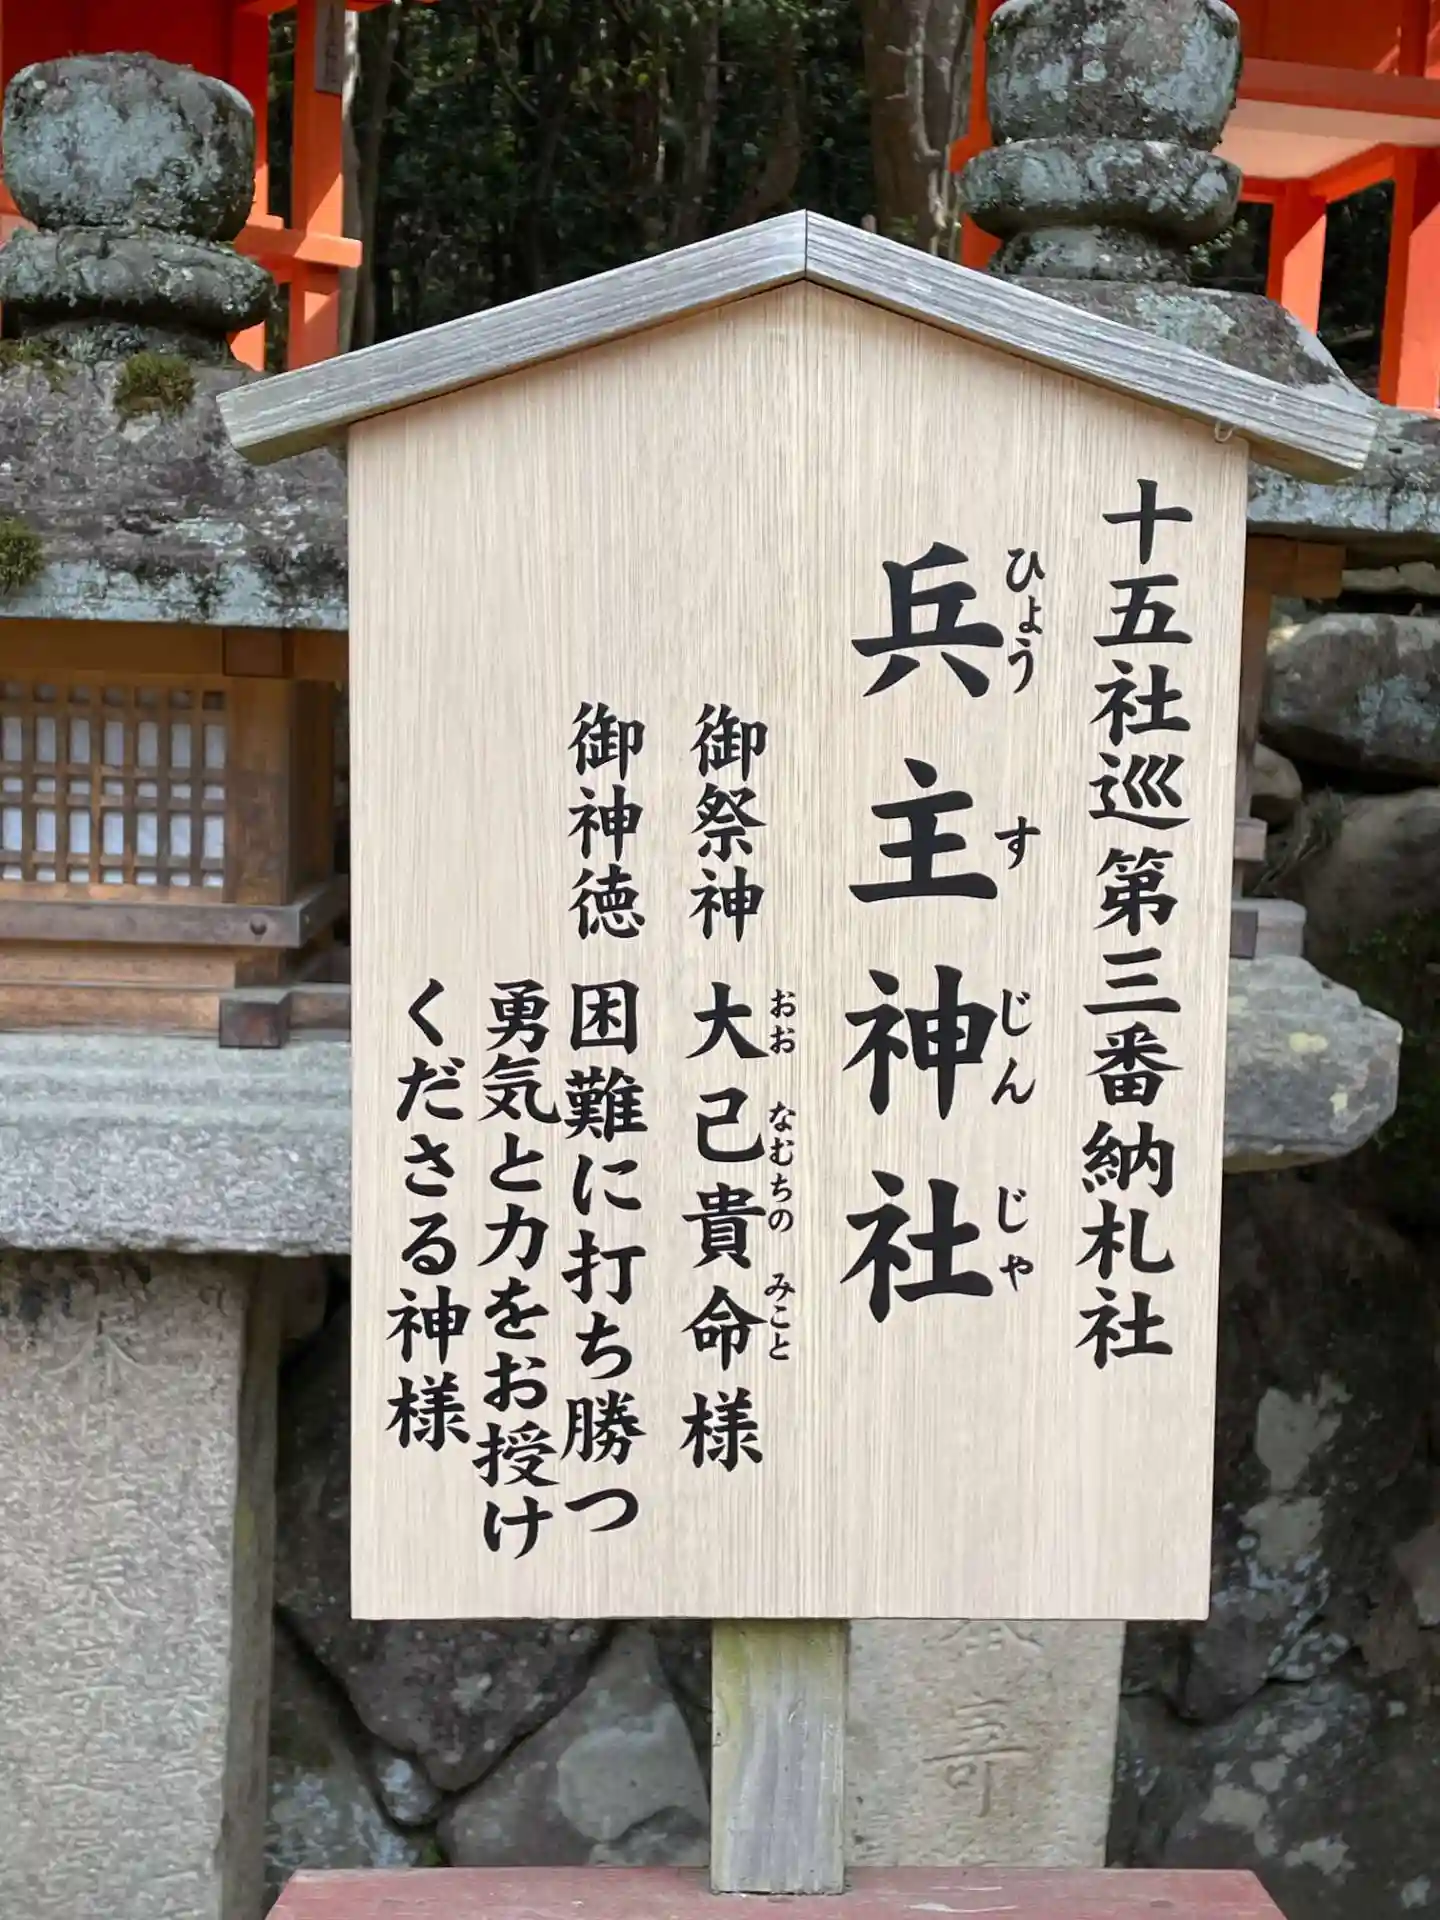 十五社巡 第三番納札社
兵主神社
ひょう す じん じゃ
御祭神 大己貴命様
おお なむちの みこと
御神徳 困難に打ち勝つ
勇気と力をお授け
くださる神様